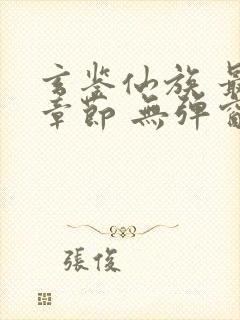 玄鉴仙族 最
章節 無弹窗
張俊